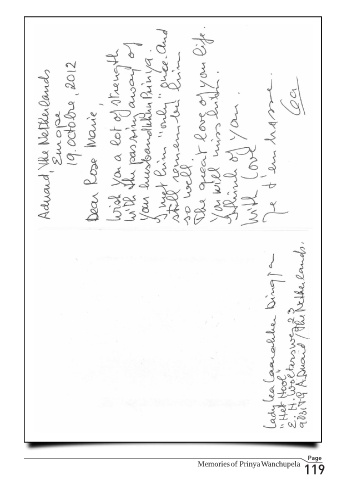 Aduard, The Netherlands
Europe
19. octobre, 2012
Dear Rose Marie,
Wish you a lot of strength
with the passing away of
your husband Khun Prinya.
I met him "only" once. And
still remember him
so well.
The great love of your life.
You will miss him.
Think of you.
With love
Je t'embrasse.
Lady Lea
"Het Hool"
E. H. Woltersweg 23
Aduard / The Netherlands.
Memories of Prinya Wanchupela
Page
119